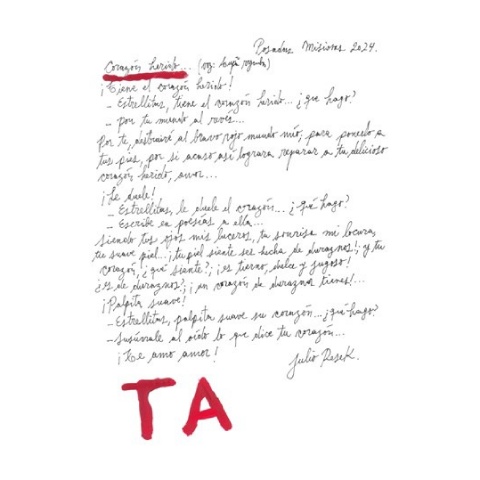 Posadas Misiones 2024.
Corazón herido... (voz: baja, ronda)
¡Tiene el corazón herido!
_ Estrellitas, tiene el corazón herido... ¿qué hago?
_ pon tu mundo al revés...
Por ti, destruiré al bravo rojo mundo mío, para ponerlo a
tus pies, por si acaso así lograra reparar a tu delicioso
corazón herido, amor...
¡Le duele!
_ Estrellitas, le duele el corazón... ¿Qué hago?
_ Escribe en poesías a ella...
siendo tus ojos mis luceros, tu sonrisa mi locura,
tu suave piel... ¡tu piel siente ser hecha de duraznos!; ¿y tu
corazón, ¿qué siente?; ¡es tierno, dulce y jugoso!
¿es de duraznos?; ¡un corazón de duraznos tienes!...
¡Palpita suave!
_ Estrellitas, palpita suave su corazón... ¿qué hago?
_ Susúrrale al oído lo que dice tu corazón...
¡te amo amor!
Julio Resek.
TA